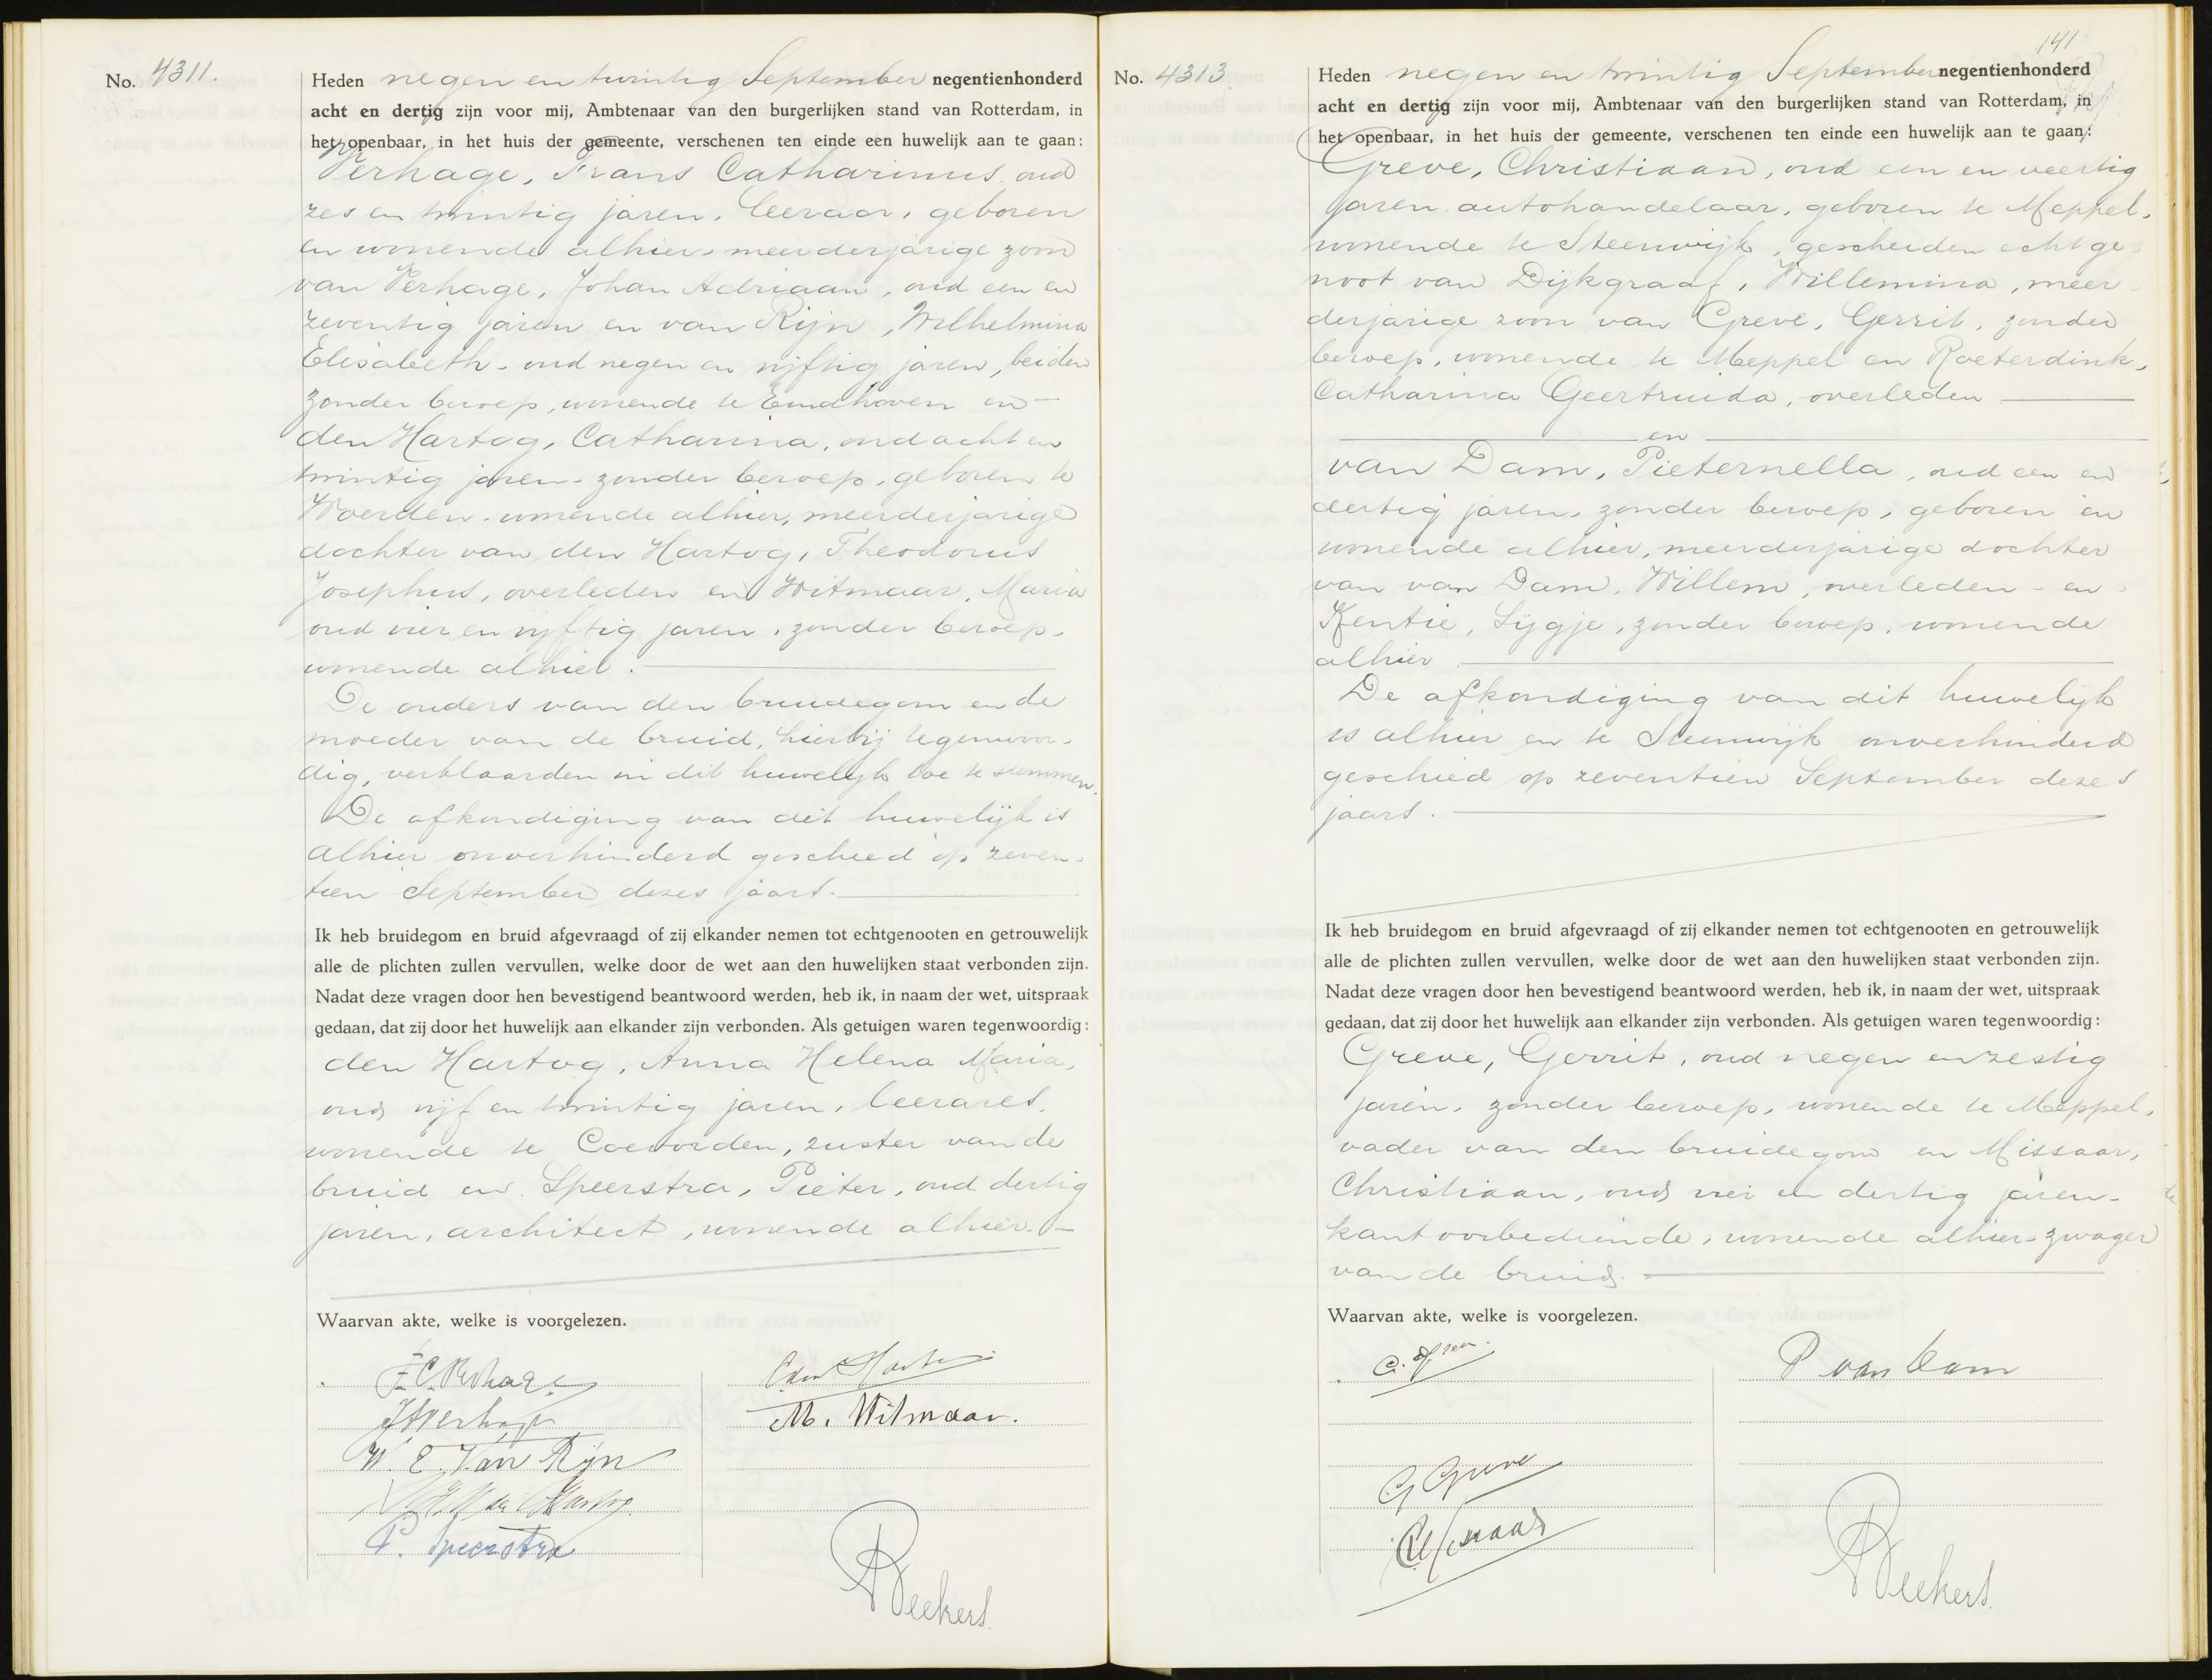 No. 4311.
Heden negen en twintig September negentienhonderd
acht en dertig zijn voor mij, Ambtenaar van den burgerlijken stand van Rotterdam, in
het openbaar, in het huis der gemeente, verschenen ten einde een huwelijk aan te gaan:
Verhage, Frans Catharinus, oud
zes en twintig jaren, leeraar, geboren
en wonende alhier, meerderjarige zoon
van Verhage, Johan Adriaan, oud een en
zeventig jaren en van Rijn, Wilhelmina
Elisabeth, oud negen en vijftig jaren, beiden
zonder beroep, wonende te Eindhoven en
den Hartog, Catharina, oud acht en
twintig jaren, zonder beroep, geboren te
Woerden, wonende alhier, meerderjarige
dochter van den Hartog, Theodorus
Josephus, overleden en Witmaar, Maria
oud vier en vijftig jaren, zonder beroep,
wonende alhier.
De ouders van den bruidegom en de
moeder van de bruid, hierbij tegenwoor-
dig, verklaarden in dit huwelijk toe te stemmen.
De afkondiging van dit huwelijk is
alhier onverhinderd geschied op zeven-
tien September dezes jaars.
Ik heb bruidegom en bruid afgevraagd of zij elkander nemen tot echtgenooten en getrouwelijk
alle de plichten zullen vervullen, welke door de wet aan den huwelijken staat verbonden zijn.
Nadat deze vragen door hen bevestigend beantwoord werden, heb ik, in naam der wet, uitspraak
gedaan, dat zij door het huwelijk aan elkander zijn verbonden. Als getuigen waren tegenwoordig:
den Hartog, Anna Helena Maria,
oud vijf en twintig jaren, leerares,
wonende te Coevorden, zuster van de
bruid en Speerstra, Pieter, oud dertig
jaren, architect, wonende alhier.
Waarvan akte, welke is voorgelezen.
F.C. Verhage
JAVerhage
W. E. Van Rijn
den Hartog
P. Speerstra
C den Hartog
M. Witmaar.
141
No. 4313
Heden negen en twintig September negentienhonderd
acht en dertig zijn voor mij, Ambtenaar van den burgerlijken stand van Rotterdam, in
het openbaar, in het huis der gemeente, verschenen ten einde een huwelijk aan te gaan:
Greve, Christiaan, oud een en veertig
jaren autohandelaar, geboren te Meppel,
wonende te Steenwijk, gescheiden echtge-
noot van Dijkgraaf, Willemina, meer-
derjarige zoon van Greve, Gerrit, zonder
beroep, wonende te Meppel en Roeterdink,
Catharina Geertruida, overleden
en
van Dam, Pieternella, oud een en
dertig jaren, zonder beroep, geboren en
wonende alhier, meerderjarige dochter
van van Dam, Willem, overleden en
Kentie, Sijgje, zonder beroep, wonende
alhier
De afkondiging van dit huwelijk
is alhier en te Steenwijk onverhinderd
geschied op zeventien September dezes
jaars.
Ik heb bruidegom en bruid afgevraagd of zij elkander nemen tot echtgenooten en getrouwelijk
alle de plichten zullen vervullen, welke door de wet aan den huwelijken staat verbonden zijn.
Nadat deze vragen door hen bevestigend beantwoord werden, heb ik, in naam der wet, uitspraak
gedaan, dat zij door het huwelijk aan elkander zijn verbonden. Als getuigen waren tegenwoordig:
Greve, Gerrit, oud negen en zestig
jaren, zonder beroep, wonende te Meppel,
vader van den bruidegom en Missaar,
Christiaan, oud drie en dertig jaren,
kantoorbediende, wonende alhier, zwager
van de bruid.
Waarvan akte, welke is voorgelezen.
G Greve
P van Dam